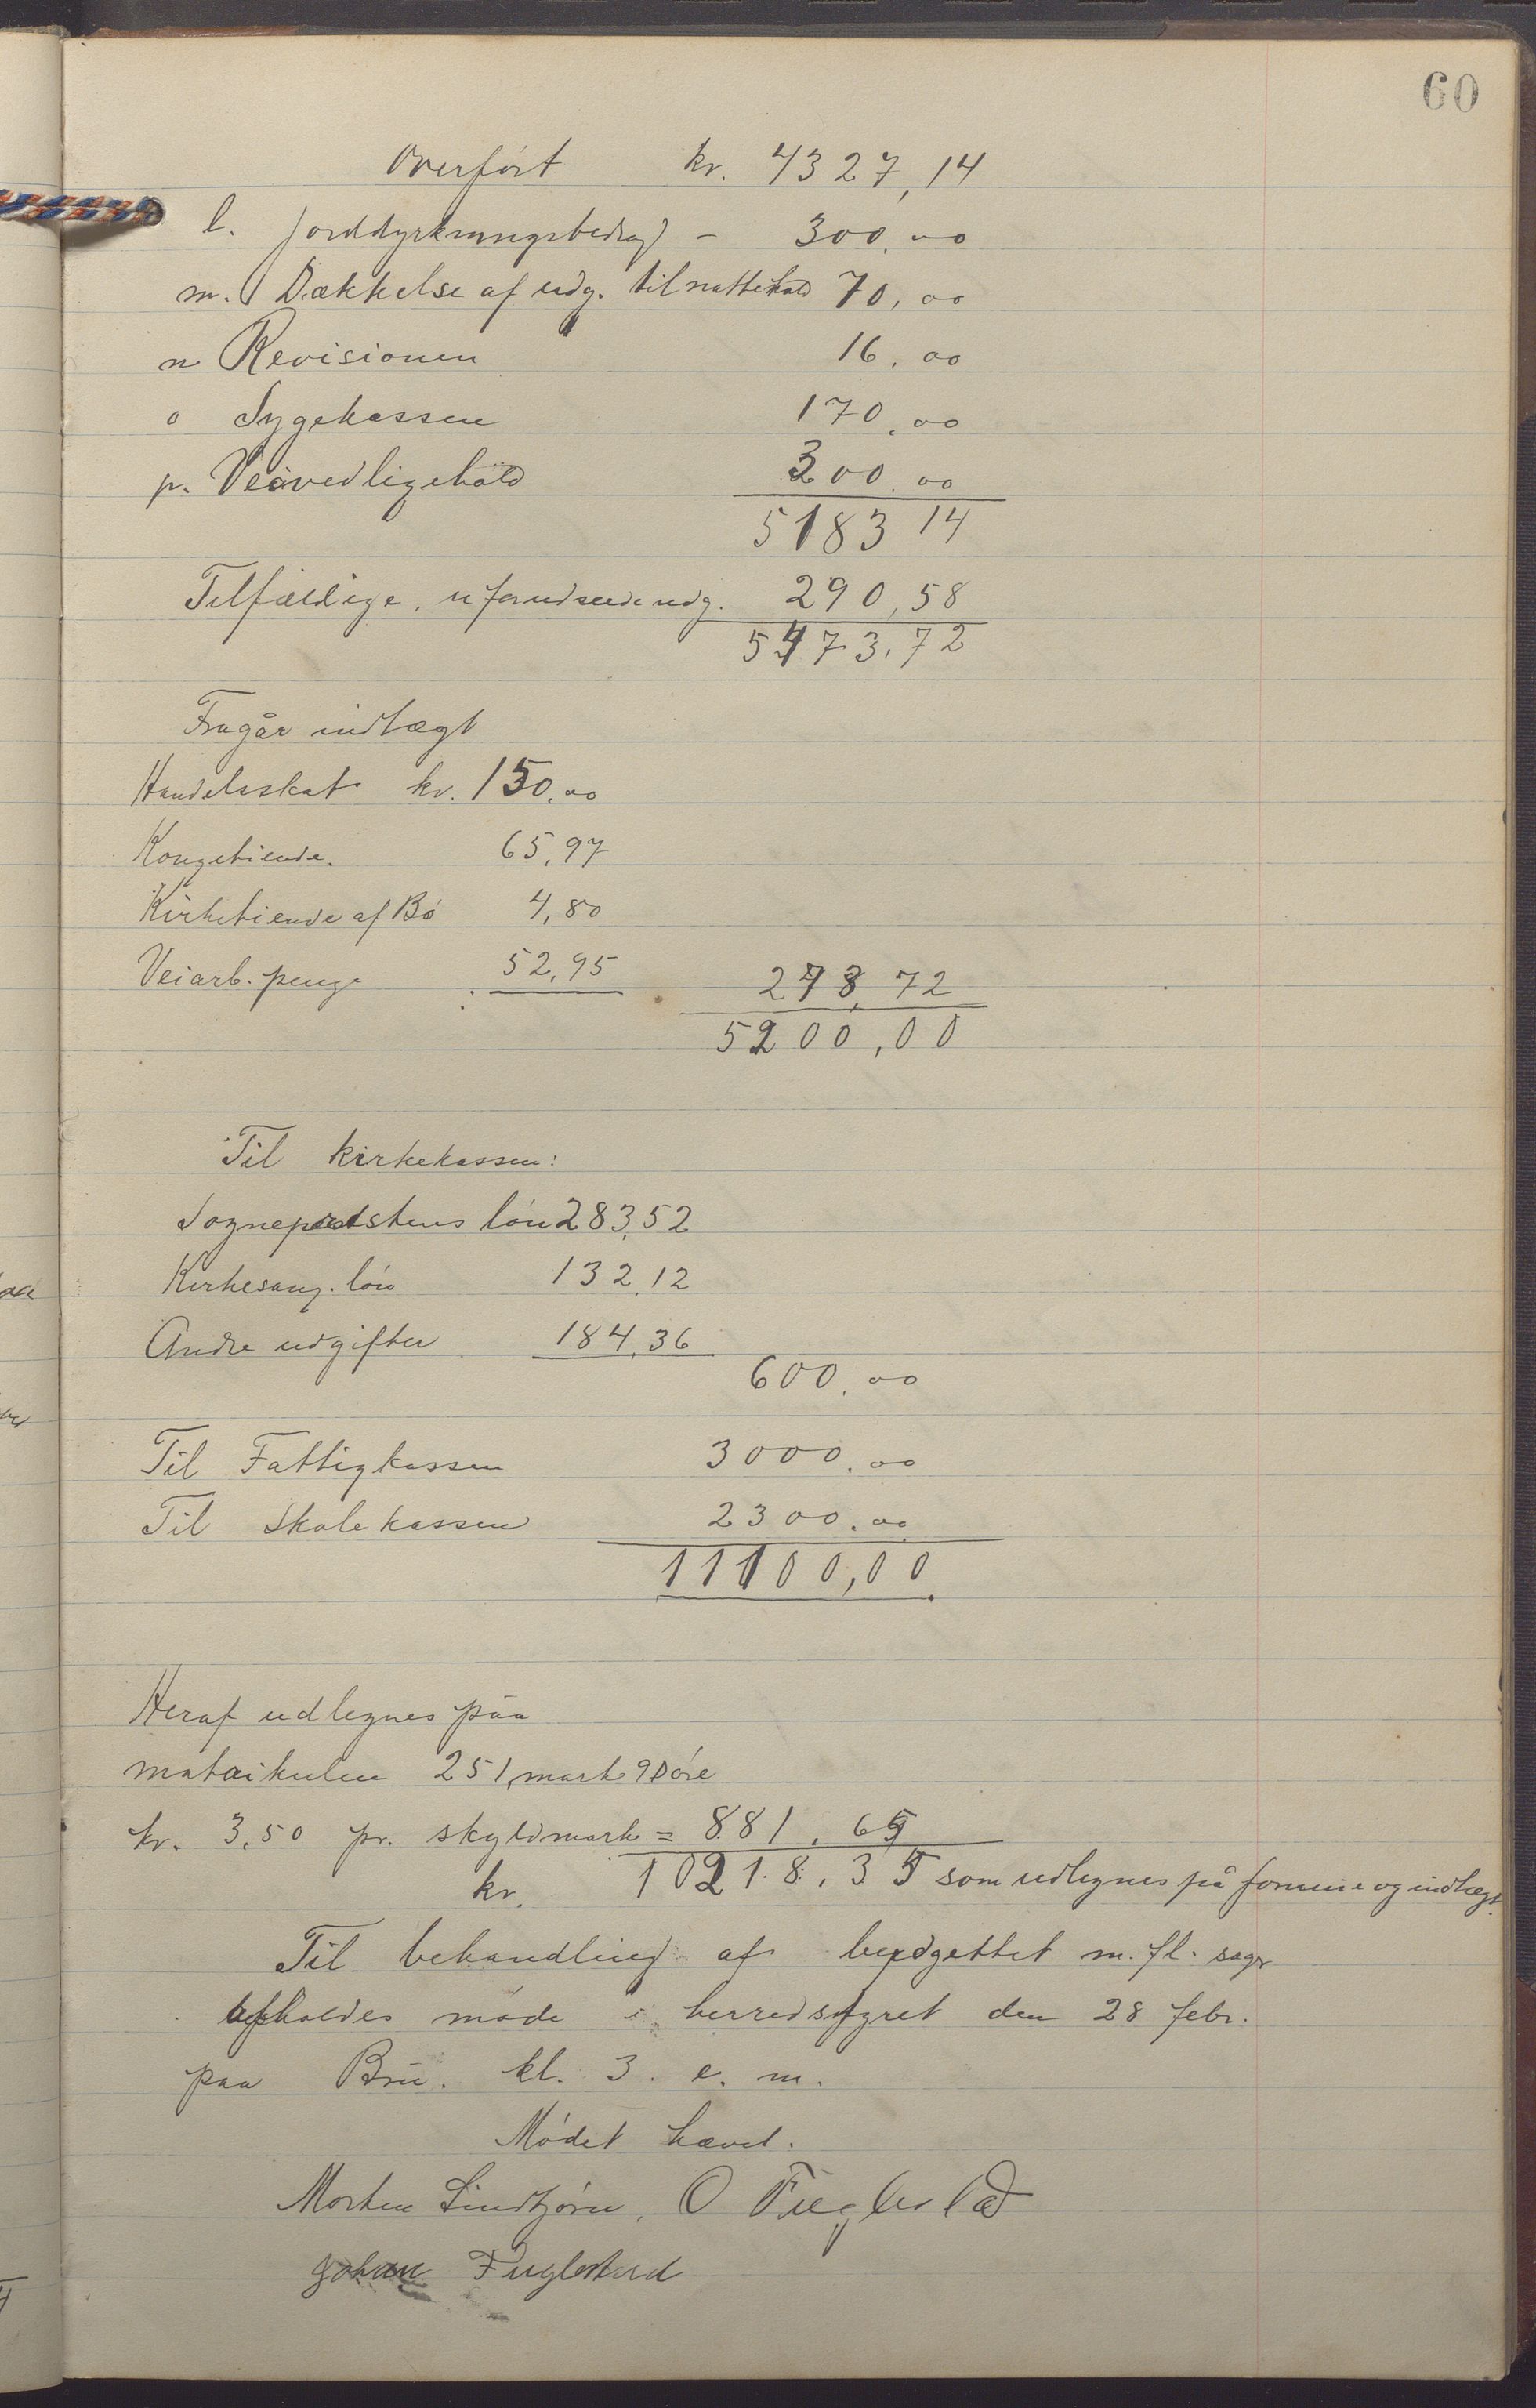 60
Overført kr. 4327,14
l. Jorddyrkningsbidrag - 300,00
m. Dækkelse af udg. til nattehold 70,00
n Revisionen 16,00
o Sygekassen 170,00
p. Veivedligehold 300,00
5183 14
Tilfældige, uforudseede udg. 290,58
5473,72
Fragår indtægt
Handelsskat kr. 150,00
Kongetiende. 65,97
Kirketiende af Bø 4,80
Veiarb. penge 52,95 273,72
5200,00
Til kirkekassen:
Sogneprestens løn 283,52
Kirkesang. løn 132,12
Andre udgifter 184,36
600,00
Til Fattigkassen 3000,00
Til Skolekassen 2300,00
11100,00
Heraf udlignes paa
matrikulen 251 mark 90 øre
kr. 3,50 pr. skyldmark = 881,65
kr. 10218,35 som udlignes på formue og indtægt.
Til behandling af budgettet m. fl. sager
afholdes møde i herredstyret den 28 febr.
paa Bru. kl. 3. e. m.
Mødet hævet.
Morten Lindtjørn, O Fuglestad
Johan Fuglestad